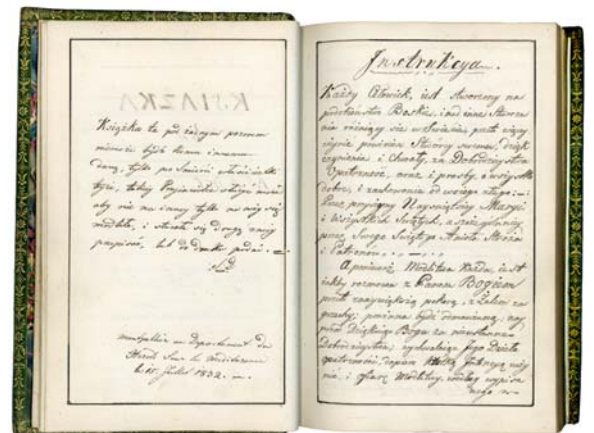 KSIĄŻKA
Książka ta pod żadnym pozorem
niemoże bydź komu innemu
daną, tylko po śmierci
tylko
aby nie na inny tylko na niej się
modliła, i starała się drugą
przepisać, lub do druku podać.
Montpellier en Departement de
Herault Sur la Mediteranee
le 15 Juillet 1832.
Instrukcya.
Każdy Człowiek, jest stworzony na
podobieństwo Boskie, i nad inne Stworze
nia rozniący się w Świecie, przeto więcej
powinien Stwórcy swemu, dzięk
czynienia i Chwały, za Dobrodziejstwa
Opatrzności, oraz i prosby, o wszystko
dobre, i zachowanie od wszego złego:
Przez przyczynę Najświętszej Maryi
i Wszystkich Świętych, a szczególniej
przez Swego Świętego Anioła Stróża
i Patronów.
A ponieważ Modlitwa Każda, jest
jakby rozmowa z Panem Bogiem
przeto z największą pokorą, z Żalem za
grzechy, powinna bydź odmawianą, naj
przód Dziękując Bogu za
dobrodziejstwa, wychwalając Jego Dzieła
opatrzności, dopiero Każdą Intencyę
nić, i ofiarę Modlitwy, według wypisa
nego